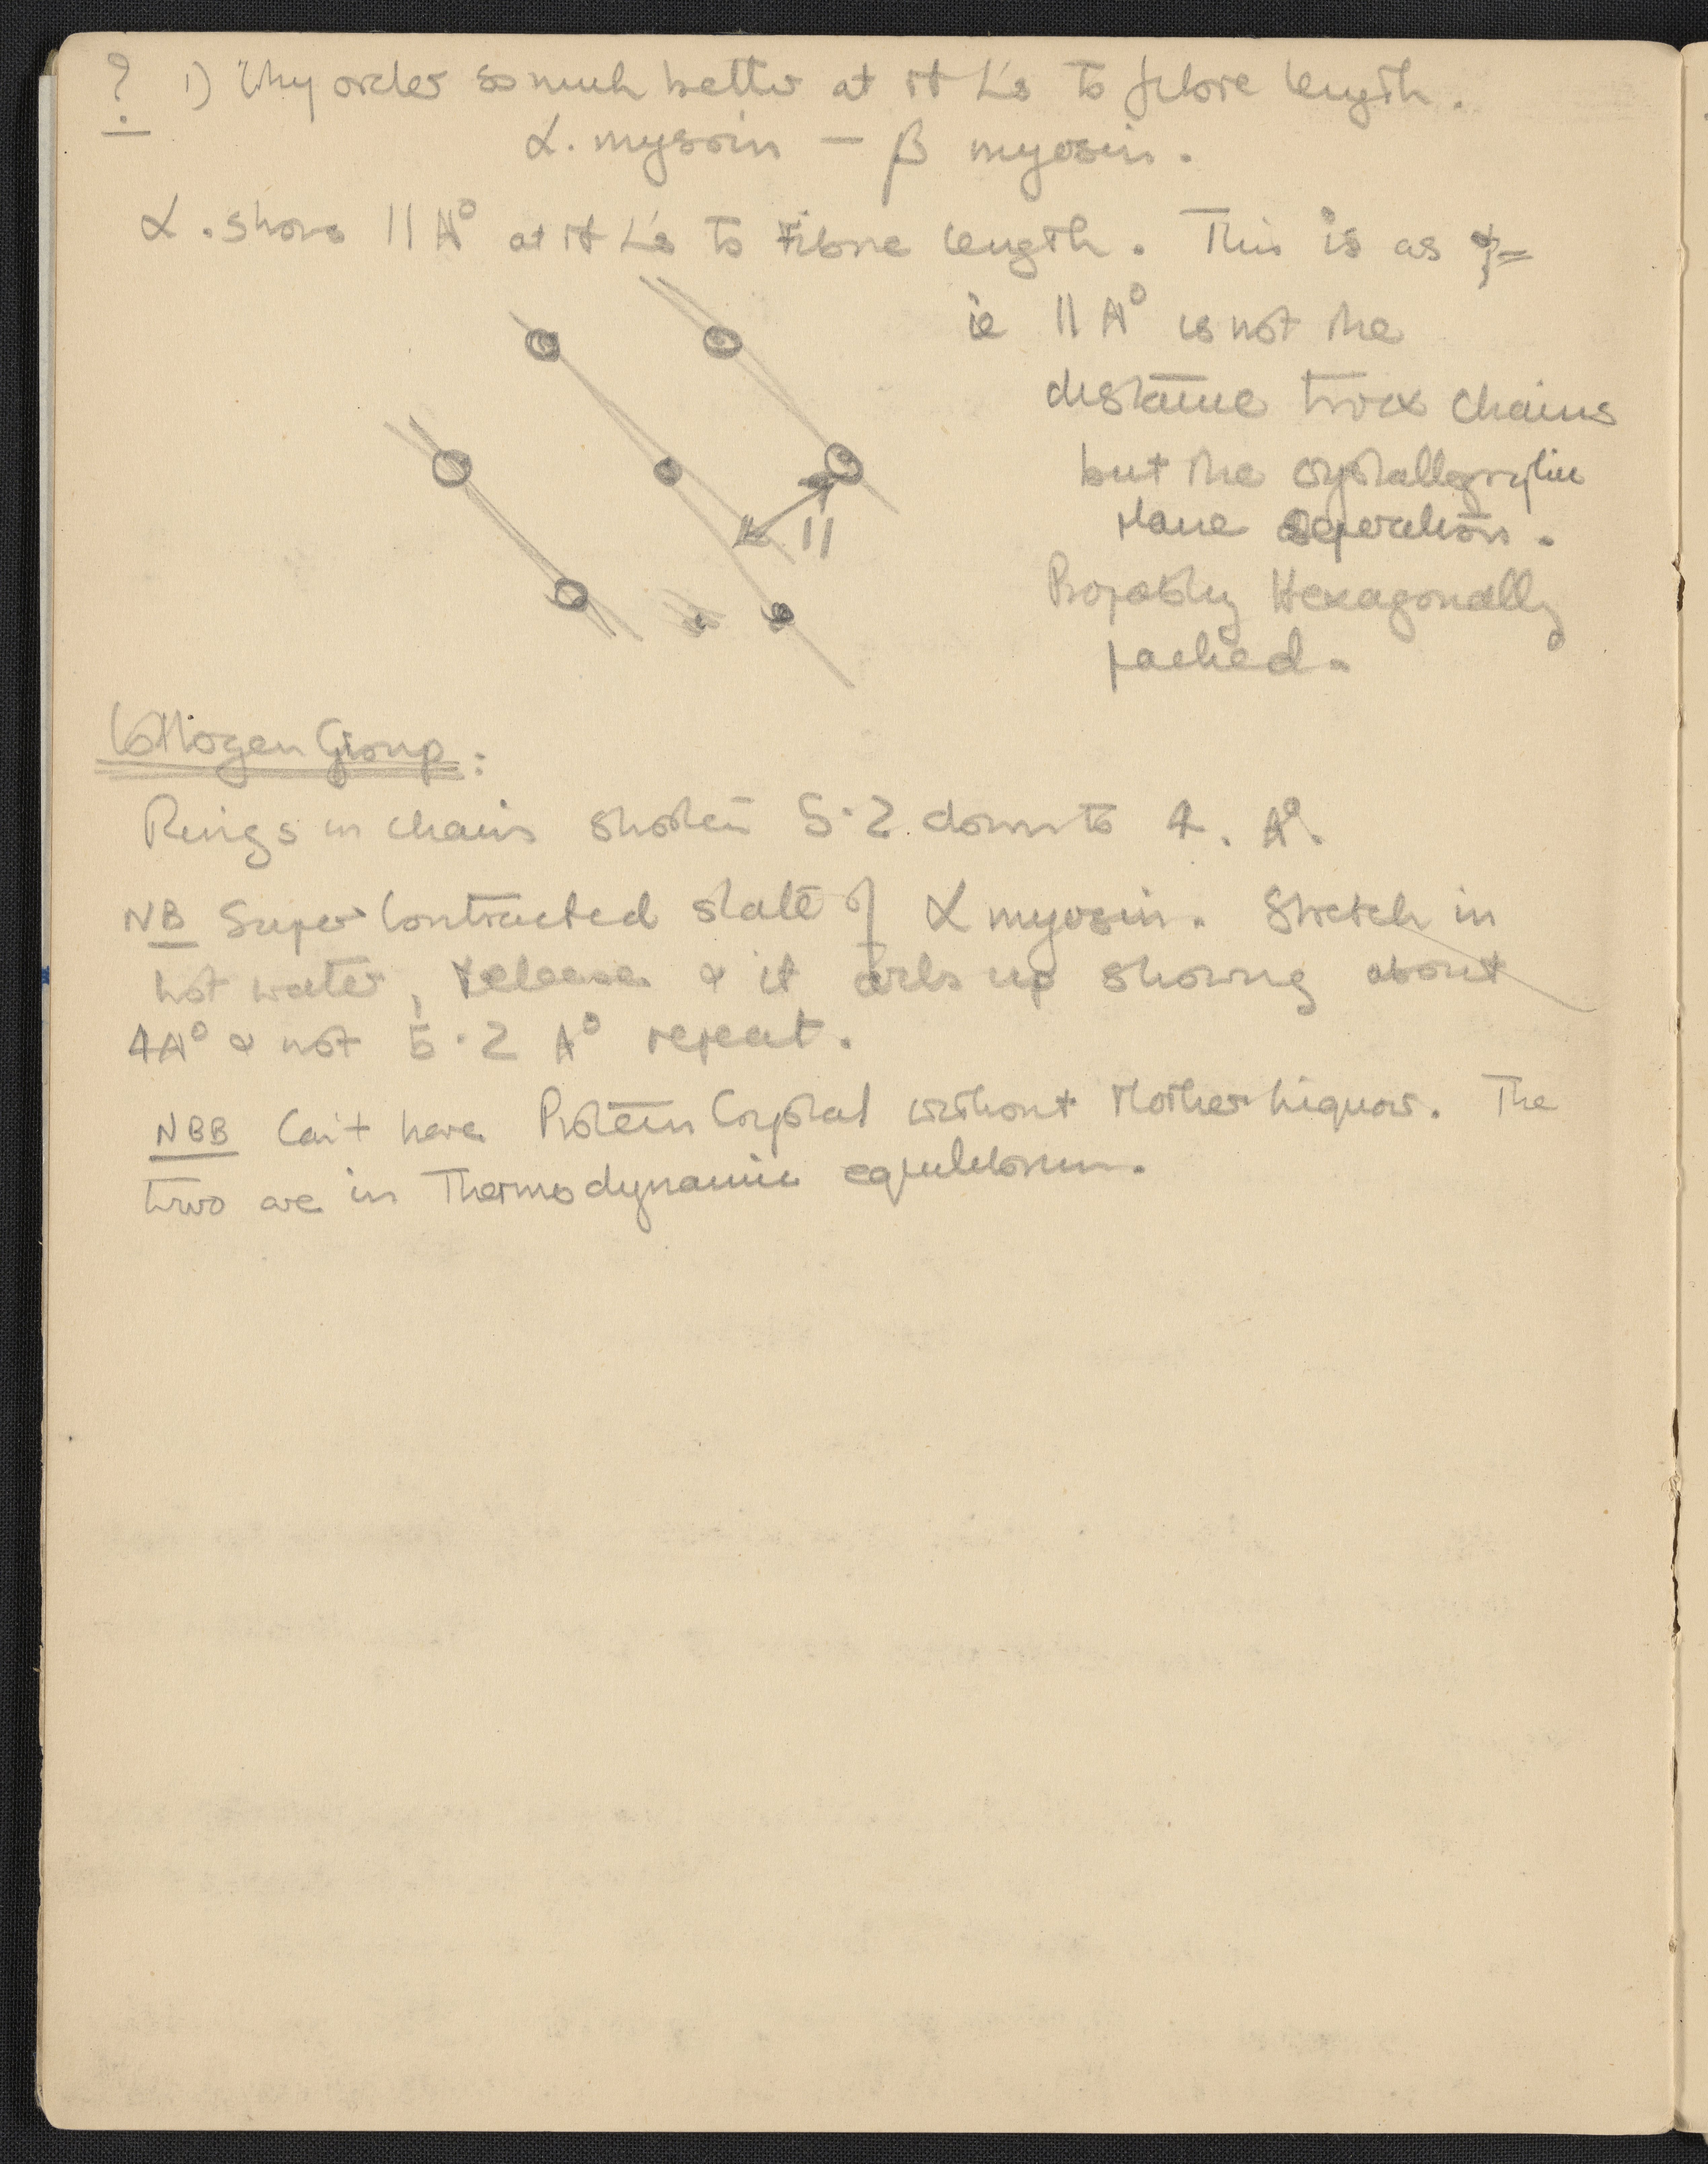 ? 1) Why order so much better at rt L's to fibre length.
α. myosin — β myosin.
α. shows 11 A° at rt L's to Fibre length. This is as
ie 11 A° is not the
distance twix chains
but the crystallographic
plane seperation.
11
Propably Hexagonally
packed.
Collogen Group:
Rings in chains shorten 5·2 down to 4. A°.
NB Super Contracted state of α myosin. Stretch in
hot water, release & it curls up showing about
4A° & not 5·2 A° repeat.
NBB Can't have Protein Crystal without Mother Liquor. The
two are in Thermodynamic equilibrium.